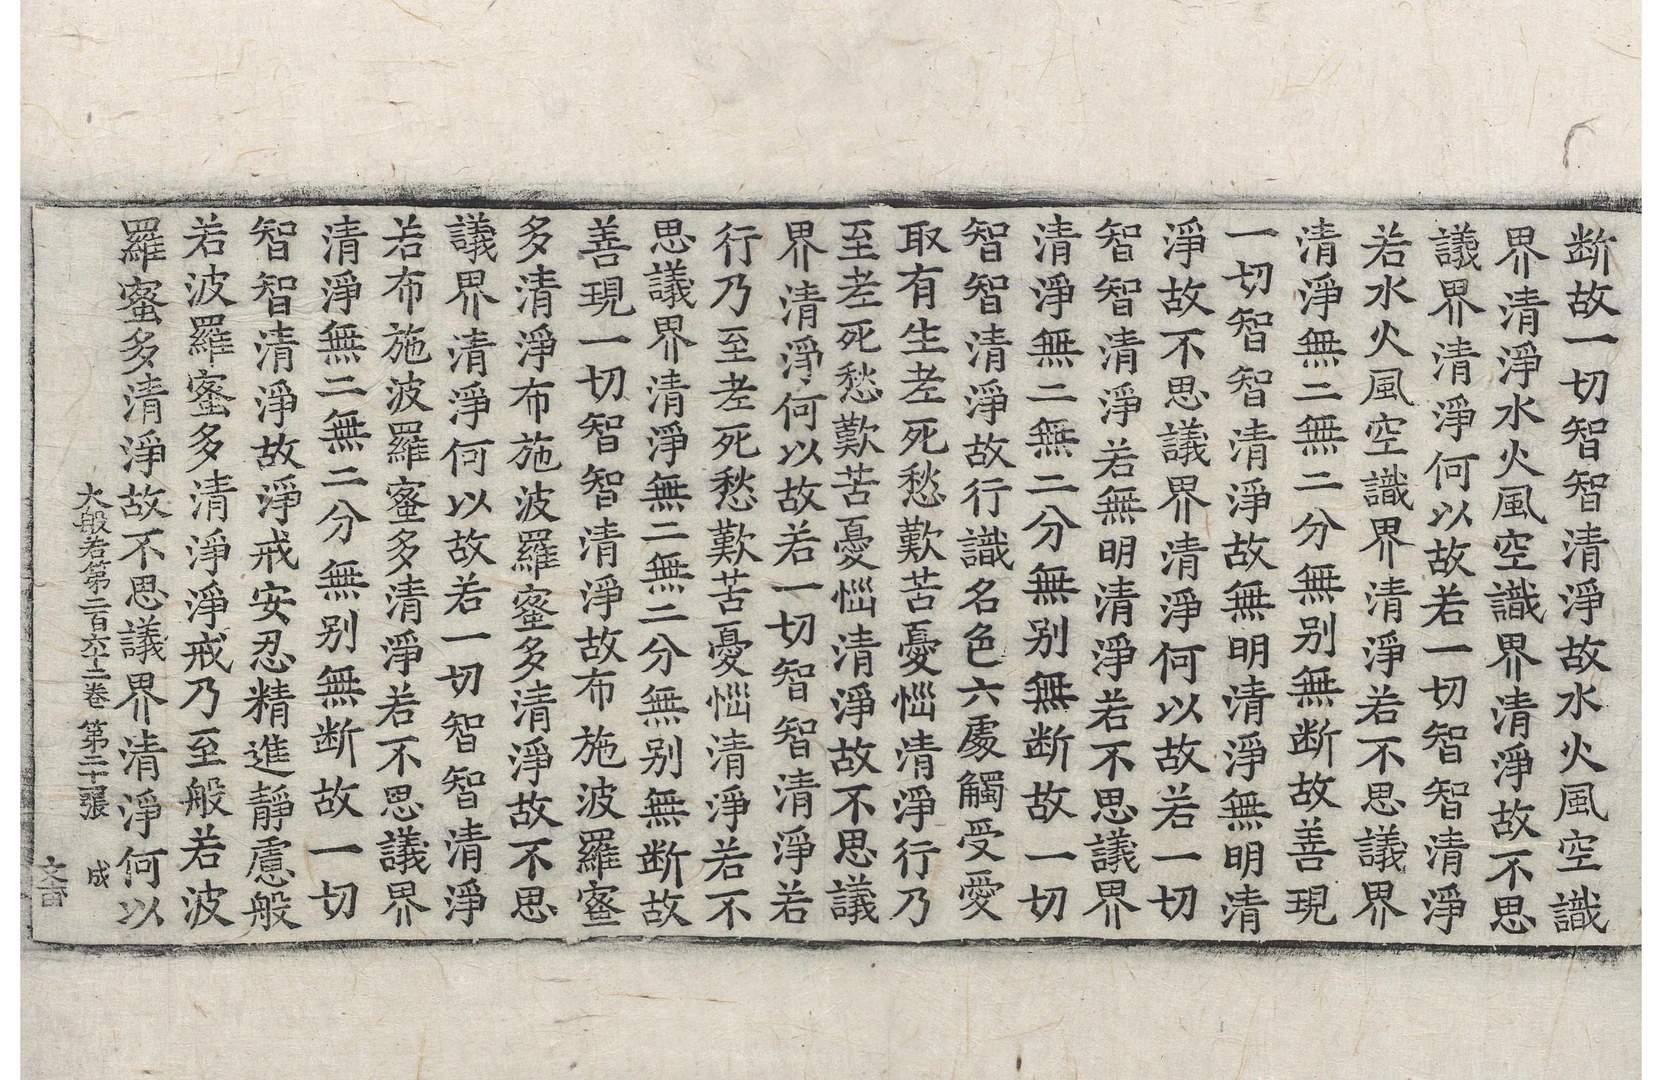 断故一切智智清淨故水火風空識
界清淨水火風空識界清淨故不思
議界清淨何以故若一切智智清淨
若水火風空識界清淨若不思議界
清淨無二無二分無别無断故善現
一切智智清淨故無明清淨無明清
淨故不思議界清淨何以故若一切
智智清淨若無明清淨若不思議界
清淨無二無二分無别無断故一切
智智清淨故行識名色六處觸受愛
取有生老死愁歎苦憂惱清淨行乃
至老死愁歎苦憂惱清淨故不思議
界清淨何以故若一切智智清淨若
行乃至老死愁歎苦憂惱清淨若不
思議界清淨無二無二分無别無断故
善現一切智智清淨故布施波羅蜜
多清淨布施波羅蜜多清淨故不思
議界清淨何以故若一切智智清淨
若布施波羅蜜多清淨若不思議界
清淨無二無二分無别無断故一切
智智清淨故淨戒安忍精進靜慮般
若波羅蜜多清淨淨戒乃至般若波
羅蜜多清淨故不思議界清淨何以
大般若第二百六十二卷 第二十張 成
文